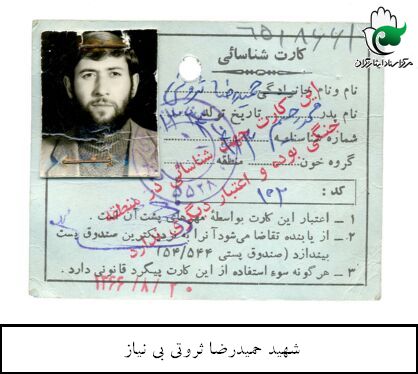 مرکز اسناد ایثارگران
کارت شناسائی
نام ونام خانوادگی: حمیدرضا ثروتی
نام پدر: تاریخ تولد
شماره شناسنامه:
گروه خون: منطقه
این کارت جهت شناسائی در منطقه
جنگی بوده و اعتبار دیگری ندارد
کد: ۱۰۲
۱ ــ اعتبار این کارت بواسطهٔ مهرهای پشت آن است.
۲ ــ از یابنده تقاضا می‌شود آنرا به نزدیکترین صندوق پست
بیندازد (صندوق پستی ۱۵۴/۵۴۴)
۳ ــ هرگونه سوء استفاده از این کارت پیگرد قانونی دارد.
۱۳۶۶/۸/۲۰
شهید حمیدرضا ثروتی بی نیاز